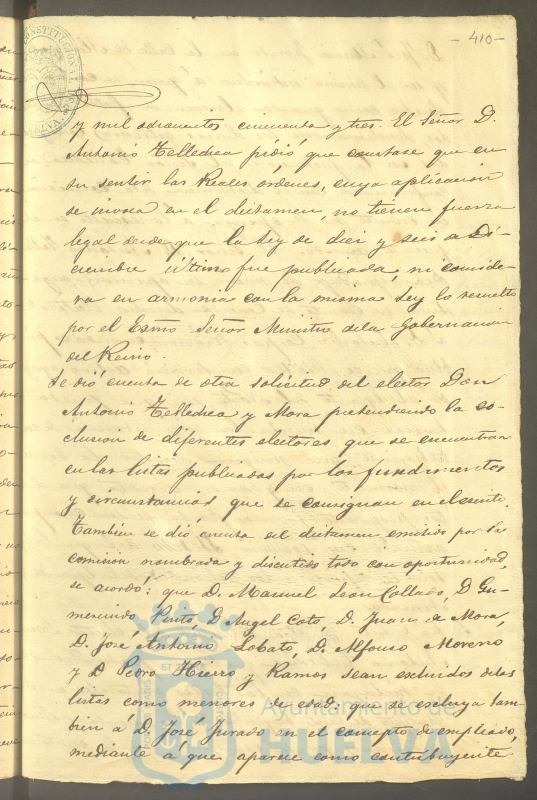 - 410 -
y mil ochocientos cincuenta y tres. El Señor D.
Antonio Telledrea pidió que constase que en
su sentir las Reales órdenes, cuya aplicacion
se invoca en el dictamen, no tienen fuerza
legal desde que la Ley de diez y seis de Di-
ciembre último fue publicada, ni conside-
ra en armonia con la misma Ley lo resuelto
por el Exmo Señor Ministro de la Gobernacion
del Reino.
Se dió cuenta de otra solicitud del elector Don
Antonio Telledrea y Mora pretendiendo la es-
clusion de diferentes electores que se encuentran
en las listas publicadas por los fundamentos
y circunstancias que se consignan en el escrito.
Tambien se dió cuenta del dictamen emitido por la
comision nombrada y discutido todo con oportunidad,
se acordó: que D. Manuel Leon Collado, D Gu-
mersindo Pinto, D Angel Coto, D. Juan de Mora,
D. José Antonio Lobato, D. Alfonso Moreno
y D Pedro Hierro y Ramos sean excluidos de las
listas como menores de edad: que se excluya tam-
bien á D. José Jurado en el concepto de empleado,
mediante a que aparece como contribuyente
Ayuntamiento de
HUELVA